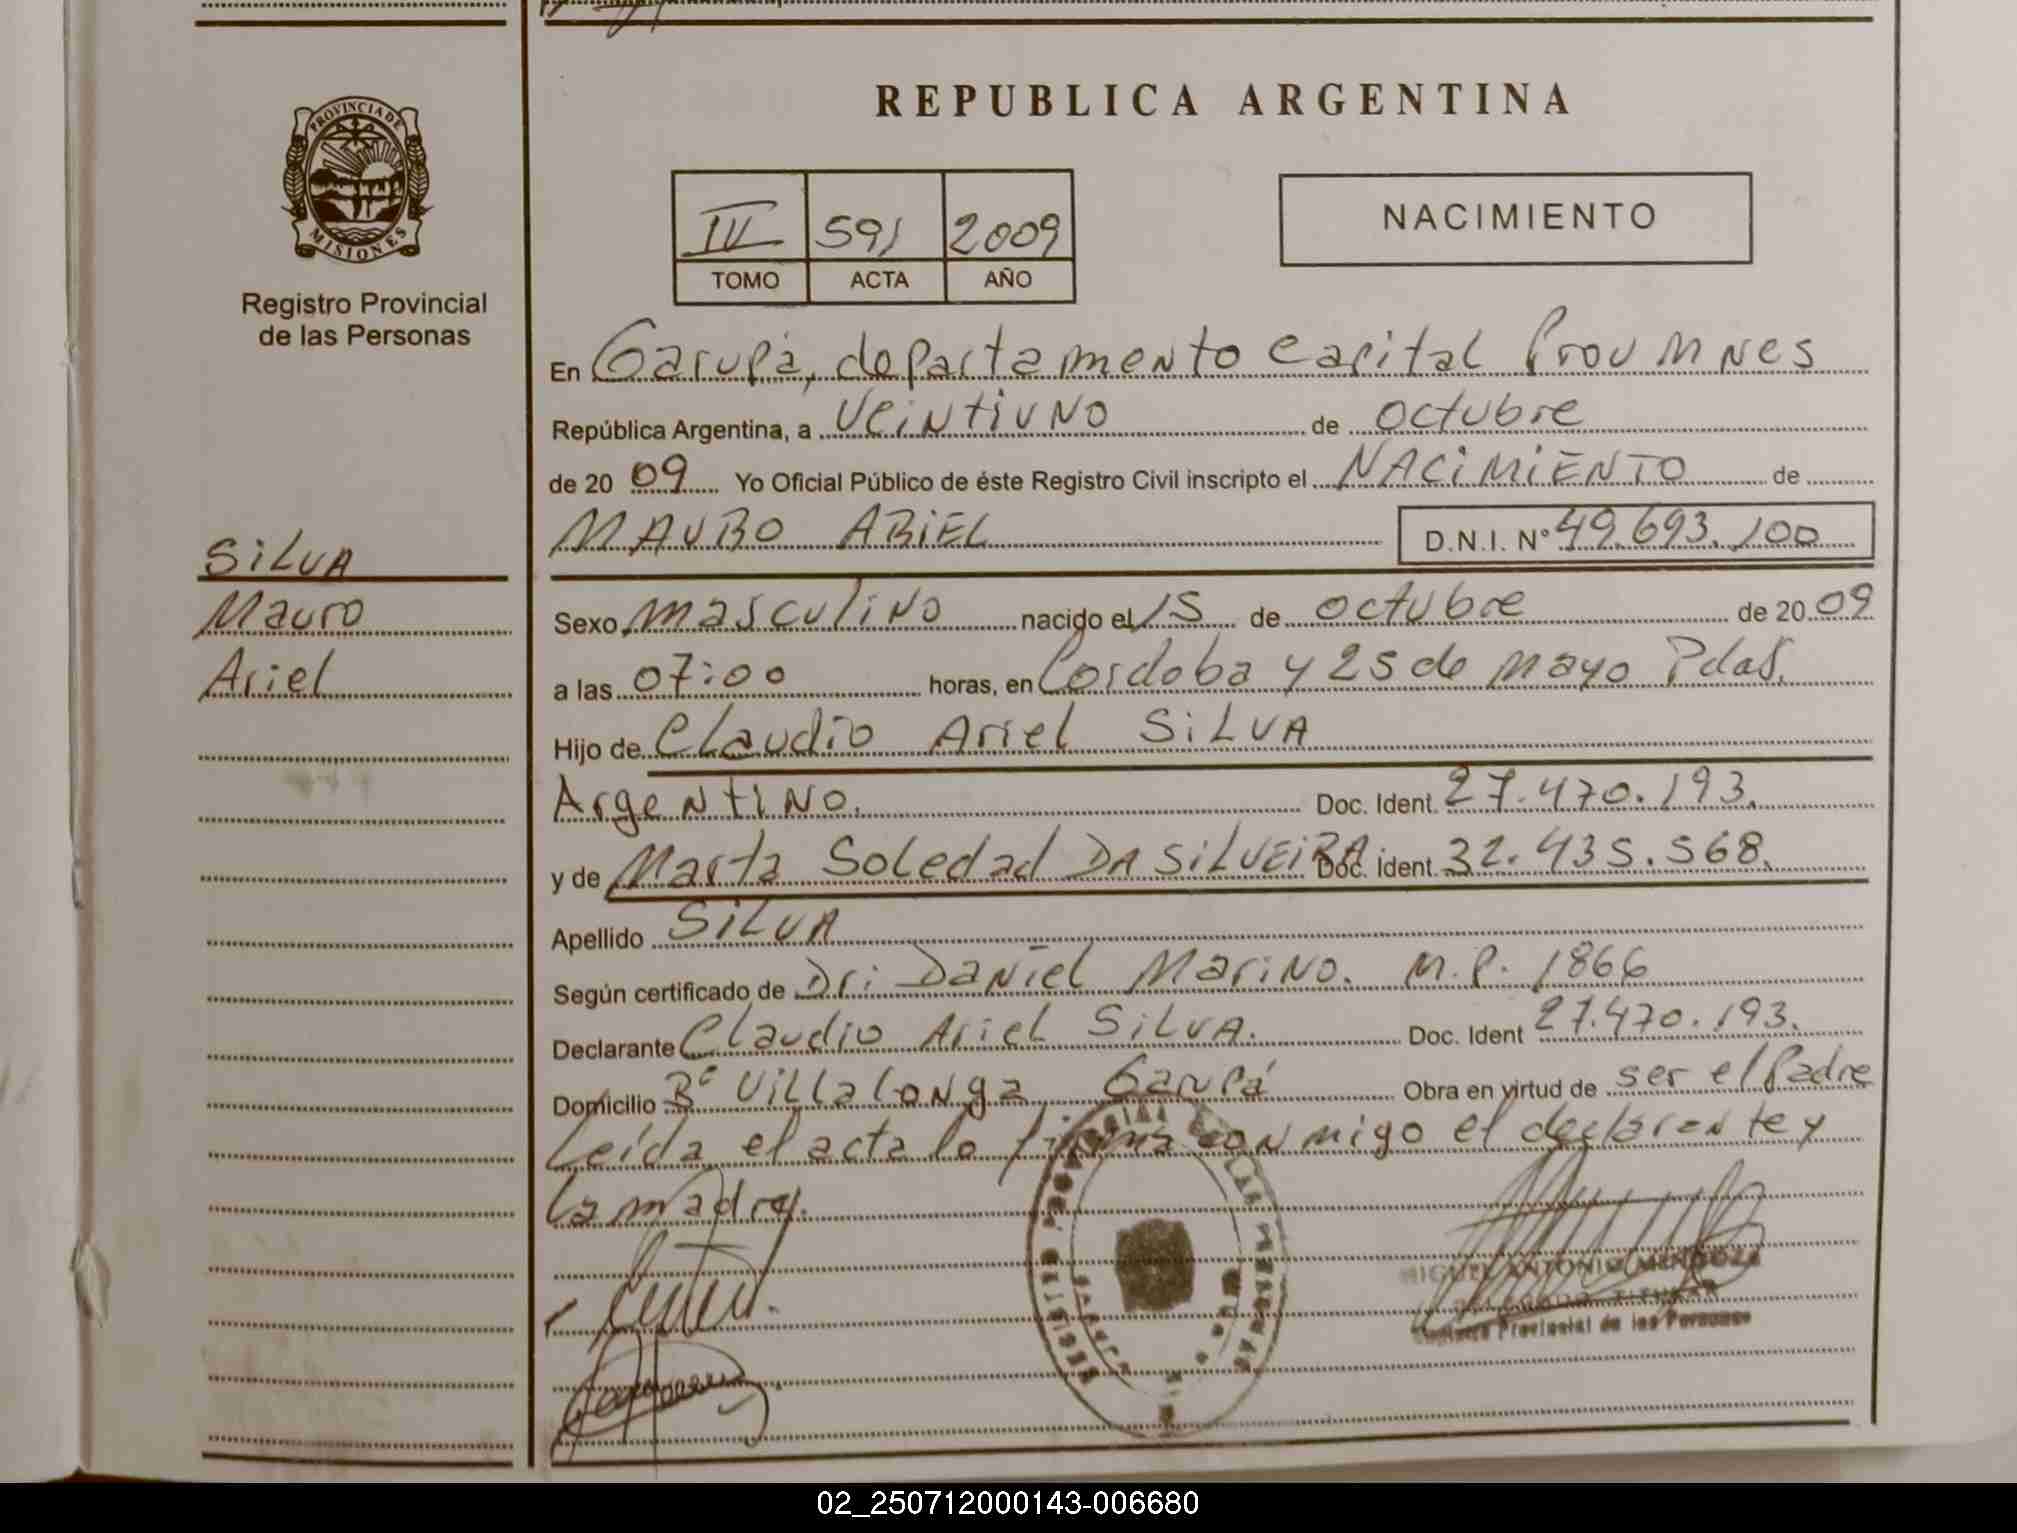 REPUBLICA ARGENTINA
PROVINCIA DE
MISIONES
Registro Provincial
de las Personas
IV 591 2009
TOMO ACTA AÑO
NACIMIENTO
En Garupá, departamento Capital Prov Mnes
República Argentina, a veintiuno de octubre
de 20 09 Yo Oficial Público de éste Registro Civil inscripto el NACIMIENTO de
MAURO ARIEL D.N.I. N° 49.693.100
SILVA
Mauro
Ariel
Sexo masculino nacido el 15 de octubre de 20 09
a las 07:00 horas, en Cordoba y 25 de mayo Pdas.
Hijo de Claudio Ariel SILVA
Argentino. Doc. Ident. 27.470.193.
y de Marta Soledad DA SILVEIRA Doc. Ident. 32.435.568.
Apellido SILVA
Según certificado de Dr: Daniel Marino. M.P. 1866
Declarante Claudio Ariel SILVA. Doc. Ident 27.470.193.
Domicilio B° Villalonga Garupá Obra en virtud de ser el Padre
Leída el acta la firma conmigo el declarante y
la madre.
MIGUEL ANTONIO MENDOZA
Provincial de las Personas
02_250712000143-006680